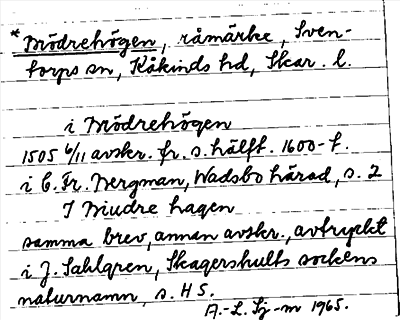 *Mödrehögen, råmärke, Sven-
torps sn, Kåkinds hd, Skar. l.
i Mödrehögen
1505 6/11 avskr. fr. s. hälft. 1600-t.
i C. Fr. Bergman, Wadsbo härad, s. 2
I Miudre hagen
samma brev, annan avskr., avtryckt
i J. Sahlgren, Skagershults sockens
naturnamn, s. 45.
A.-L. Sj-m 1965.